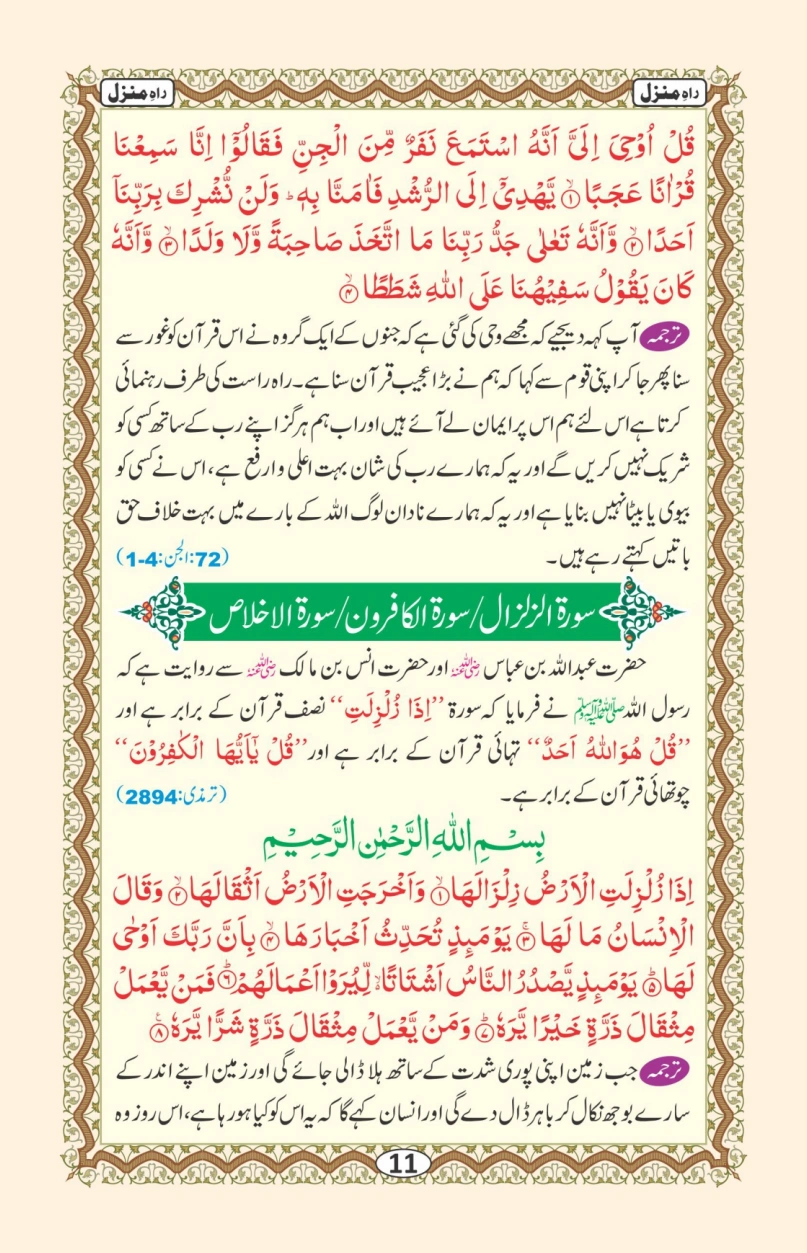 راہِ منزل
راہِ منزل
قُلْ اُوْحِیَ اِلَیَّ اَنَّهُ اسْتَمَعَ نَفَرٌ مِّنَ الْجِنِّ فَقَالُوْٓا اِنَّا سَمِعْنَا
قُرْاٰنًا عَجَبًا ۙ﴿۱﴾ یَّهْدِیْٓ اِلَی الرُّشْدِ فَاٰمَنَّا بِهٖ ؕ وَلَنْ نُّشْرِكَ بِرَبِّنَاۤ
اَحَدًا ۙ﴿۲﴾ وَّاَنَّهٗ تَعٰلٰی جَدُّ رَبِّنَا مَا اتَّخَذَ صَاحِبَةً وَّلَا وَلَدًا ۙ﴿۳﴾ وَّاَنَّهٗ
كَانَ یَقُوْلُ سَفِیْهُنَا عَلَی اللهِ شَطَطًا ۙ﴿۴﴾
ترجمہ آپ کہہ دیجیے کہ مجھے وحی کی گئی ہے کہ جنوں کے ایک گروہ نے اس قرآن کو غور سے
سنا پھر جا کر اپنی قوم سے کہا کہ ہم نے بڑا عجیب قرآن سنا ہے۔ راہ راست کی طرف رہنمائی
کرتا ہے اس لئے ہم اس پر ایمان لے آئے ہیں اور اب ہم ہرگز اپنے رب کے ساتھ کسی کو
شریک نہیں کریں گے اور یہ کہ ہمارے رب کی شان بہت اعلی و ارفع ہے، اس نے کسی کو
بیوی یا بیٹا نہیں بنایا ہے اور یہ کہ ہمارے نادان لوگ اللہ کے بارے میں بہت خلاف حق
باتیں کہتے رہے ہیں۔ (72:الجن:4-1)
سورۃ الزلزال/سورۃ الکافرون/سورۃ الاخلاص
حضرت عبداللہ بن عباس رضی اللہ عنہ اور حضرت انس بن مالک رضی اللہ عنہ سے روایت ہے کہ
رسول اللہ صلی اللہ علیہ وسلم نے فرمایا کہ سورۃ ’’اِذَا زُلْزِلَتِ‘‘ نصف قرآن کے برابر ہے اور
’’قُلْ هُوَ اللهُ اَحَدٌ‘‘ تہائی قرآن کے برابر ہے اور ’’قُلْ یٰٓاَیُّهَا الْكٰفِرُوْنَ‘‘
چوتھائی قرآن کے برابر ہے۔ (ترمذی:2894)
بِسْمِ اللهِ الرَّحْمٰنِ الرَّحِیْمِ
اِذَا زُلْزِلَتِ الْاَرْضُ زِلْزَالَهَا ۙ﴿۱﴾ وَاَخْرَجَتِ الْاَرْضُ اَثْقَالَهَا ۙ﴿۲﴾ وَقَالَ
الْاِنْسَانُ مَا لَهَا ۚ﴿۳﴾ یَوْمَىِٕذٍ تُحَدِّثُ اَخْبَارَهَا ۙ﴿۴﴾ بِاَنَّ رَبَّكَ اَوْحٰی
لَهَا ؕ﴿۵﴾ یَوْمَىِٕذٍ یَّصْدُرُ النَّاسُ اَشْتَاتًا ۙ۬ لِّیُرَوْا اَعْمَالَهُمْ ؕ﴿۶﴾ فَمَنْ یَّعْمَلْ
مِثْقَالَ ذَرَّةٍ خَیْرًا یَّرَهٗ ؕ﴿۷﴾ وَمَنْ یَّعْمَلْ مِثْقَالَ ذَرَّةٍ شَرًّا یَّرَهٗ ۙ﴿۸﴾
ترجمہ جب زمین اپنی پوری شدت کے ساتھ ہلا ڈالی جائے گی اور زمین اپنے اندر کے
سارے بوجھ نکال کر باہر ڈال دے گی اور انسان کہے گا کہ یہ اس کو کیا ہو رہا ہے، اس روز وہ
11